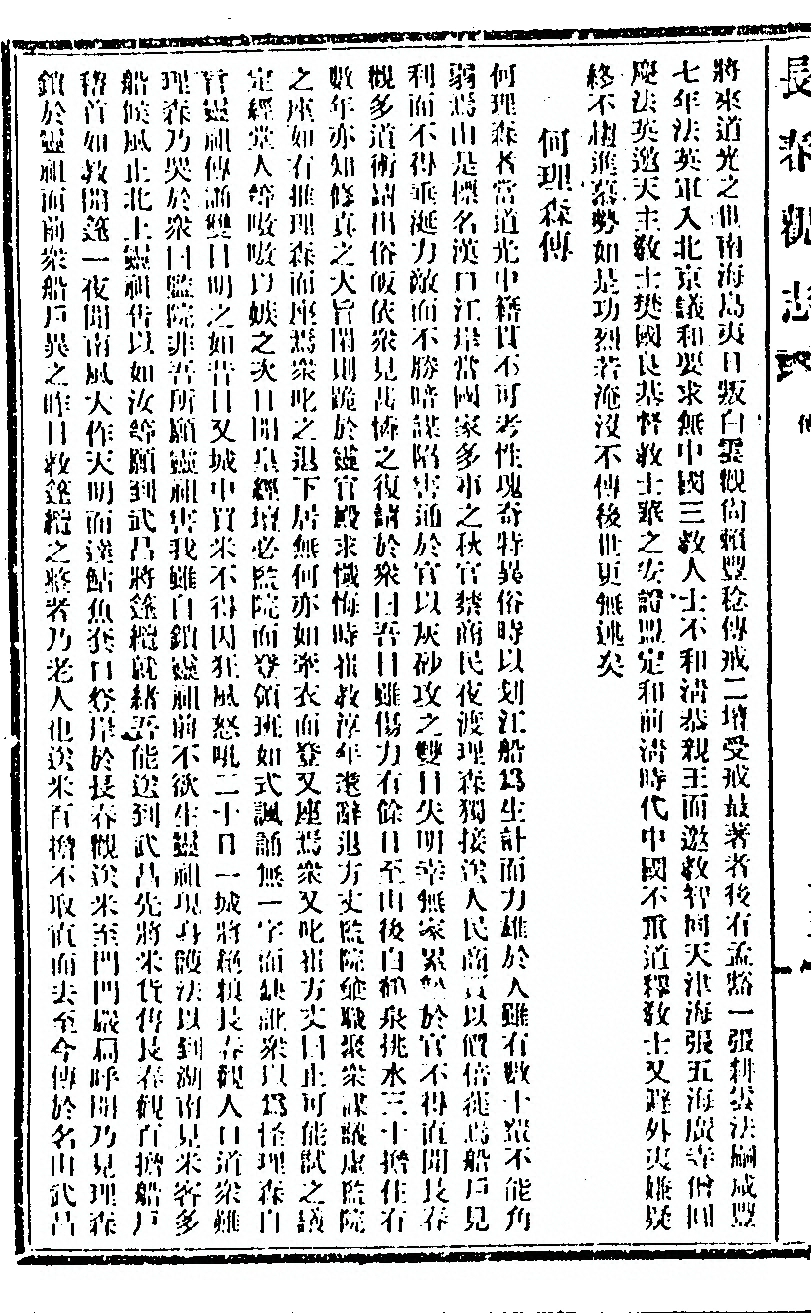 長春觀志 傳
將來道光之世南海島夷日叛白雲觀尙賴豐稔傳戒二壇受戒最著者後有孟豁一張耕雲法嗣咸豐
七年法英軍入北京議和要求無中國三教人士不和淸恭親王而邀教智同天津海張五海廣寺僧同
慶法英邀天主教士樊國良基督教士華之安證盟定和前淸時代中國不重道釋教士又避外夷嫌疑
終不趨進慕勢如是功烈若淹沒不傳後世更無述矣
何理森傳
何理森者當道光中籍貫不可考性瑰奇特異俗時以划江船爲生計而力雄於人雖有數十輩不能角
弱焉由是標名漢口江岸當國家多事之秋官禁商民夜渡理森獨接送人民商賈以價倍徙焉船戶見
利而不得垂涎力敵而不勝暗謀陷害通於官以灰砂攻之雙目失明幸無家累 於官不得直聞長春
觀多道術請出俗皈依衆見甚怖之復請於衆曰吾目雖傷力有餘日至山後白鶴泉挑水三十擔住有
數年亦知修真之大旨閒則跪於靈官殿求懺悔時崔教淳年邁辭退方丈監院 職聚衆謀議虛監院
之座如有推理森而座焉衆叱之退下居無何亦如牽衣而登又座焉衆又叱崔方丈曰止可能試之議
定經堂人等嗷嗷以嫉之次日開皇經壇必監院而登領班如式諷誦無一字而缺訛衆以爲怪理森自
言靈祖傳誦雙目明之如昔日又城中買米不得因狂風怒吼二十日一城將絕糧長春觀人口道衆難
理森乃哭於衆曰監院非吾所願靈祖害我雖自鎖靈祖前不欲生靈祖現身護法以到湖南見米客多
船候風止北上靈祖告以如汝等願到武昌將篷纜就緒吾能送到武昌先將米貨傳長春觀百擔船戶
稽首如教開篷一夜聞南風大作天明而達鮎魚套口登岸於長春觀送米至門門嚴扃呼開乃見理森
鎖於靈祖面前衆船戶異之昨日教篷纜之將者乃老人也送米百擔不取直而去至今傳於名山武昌